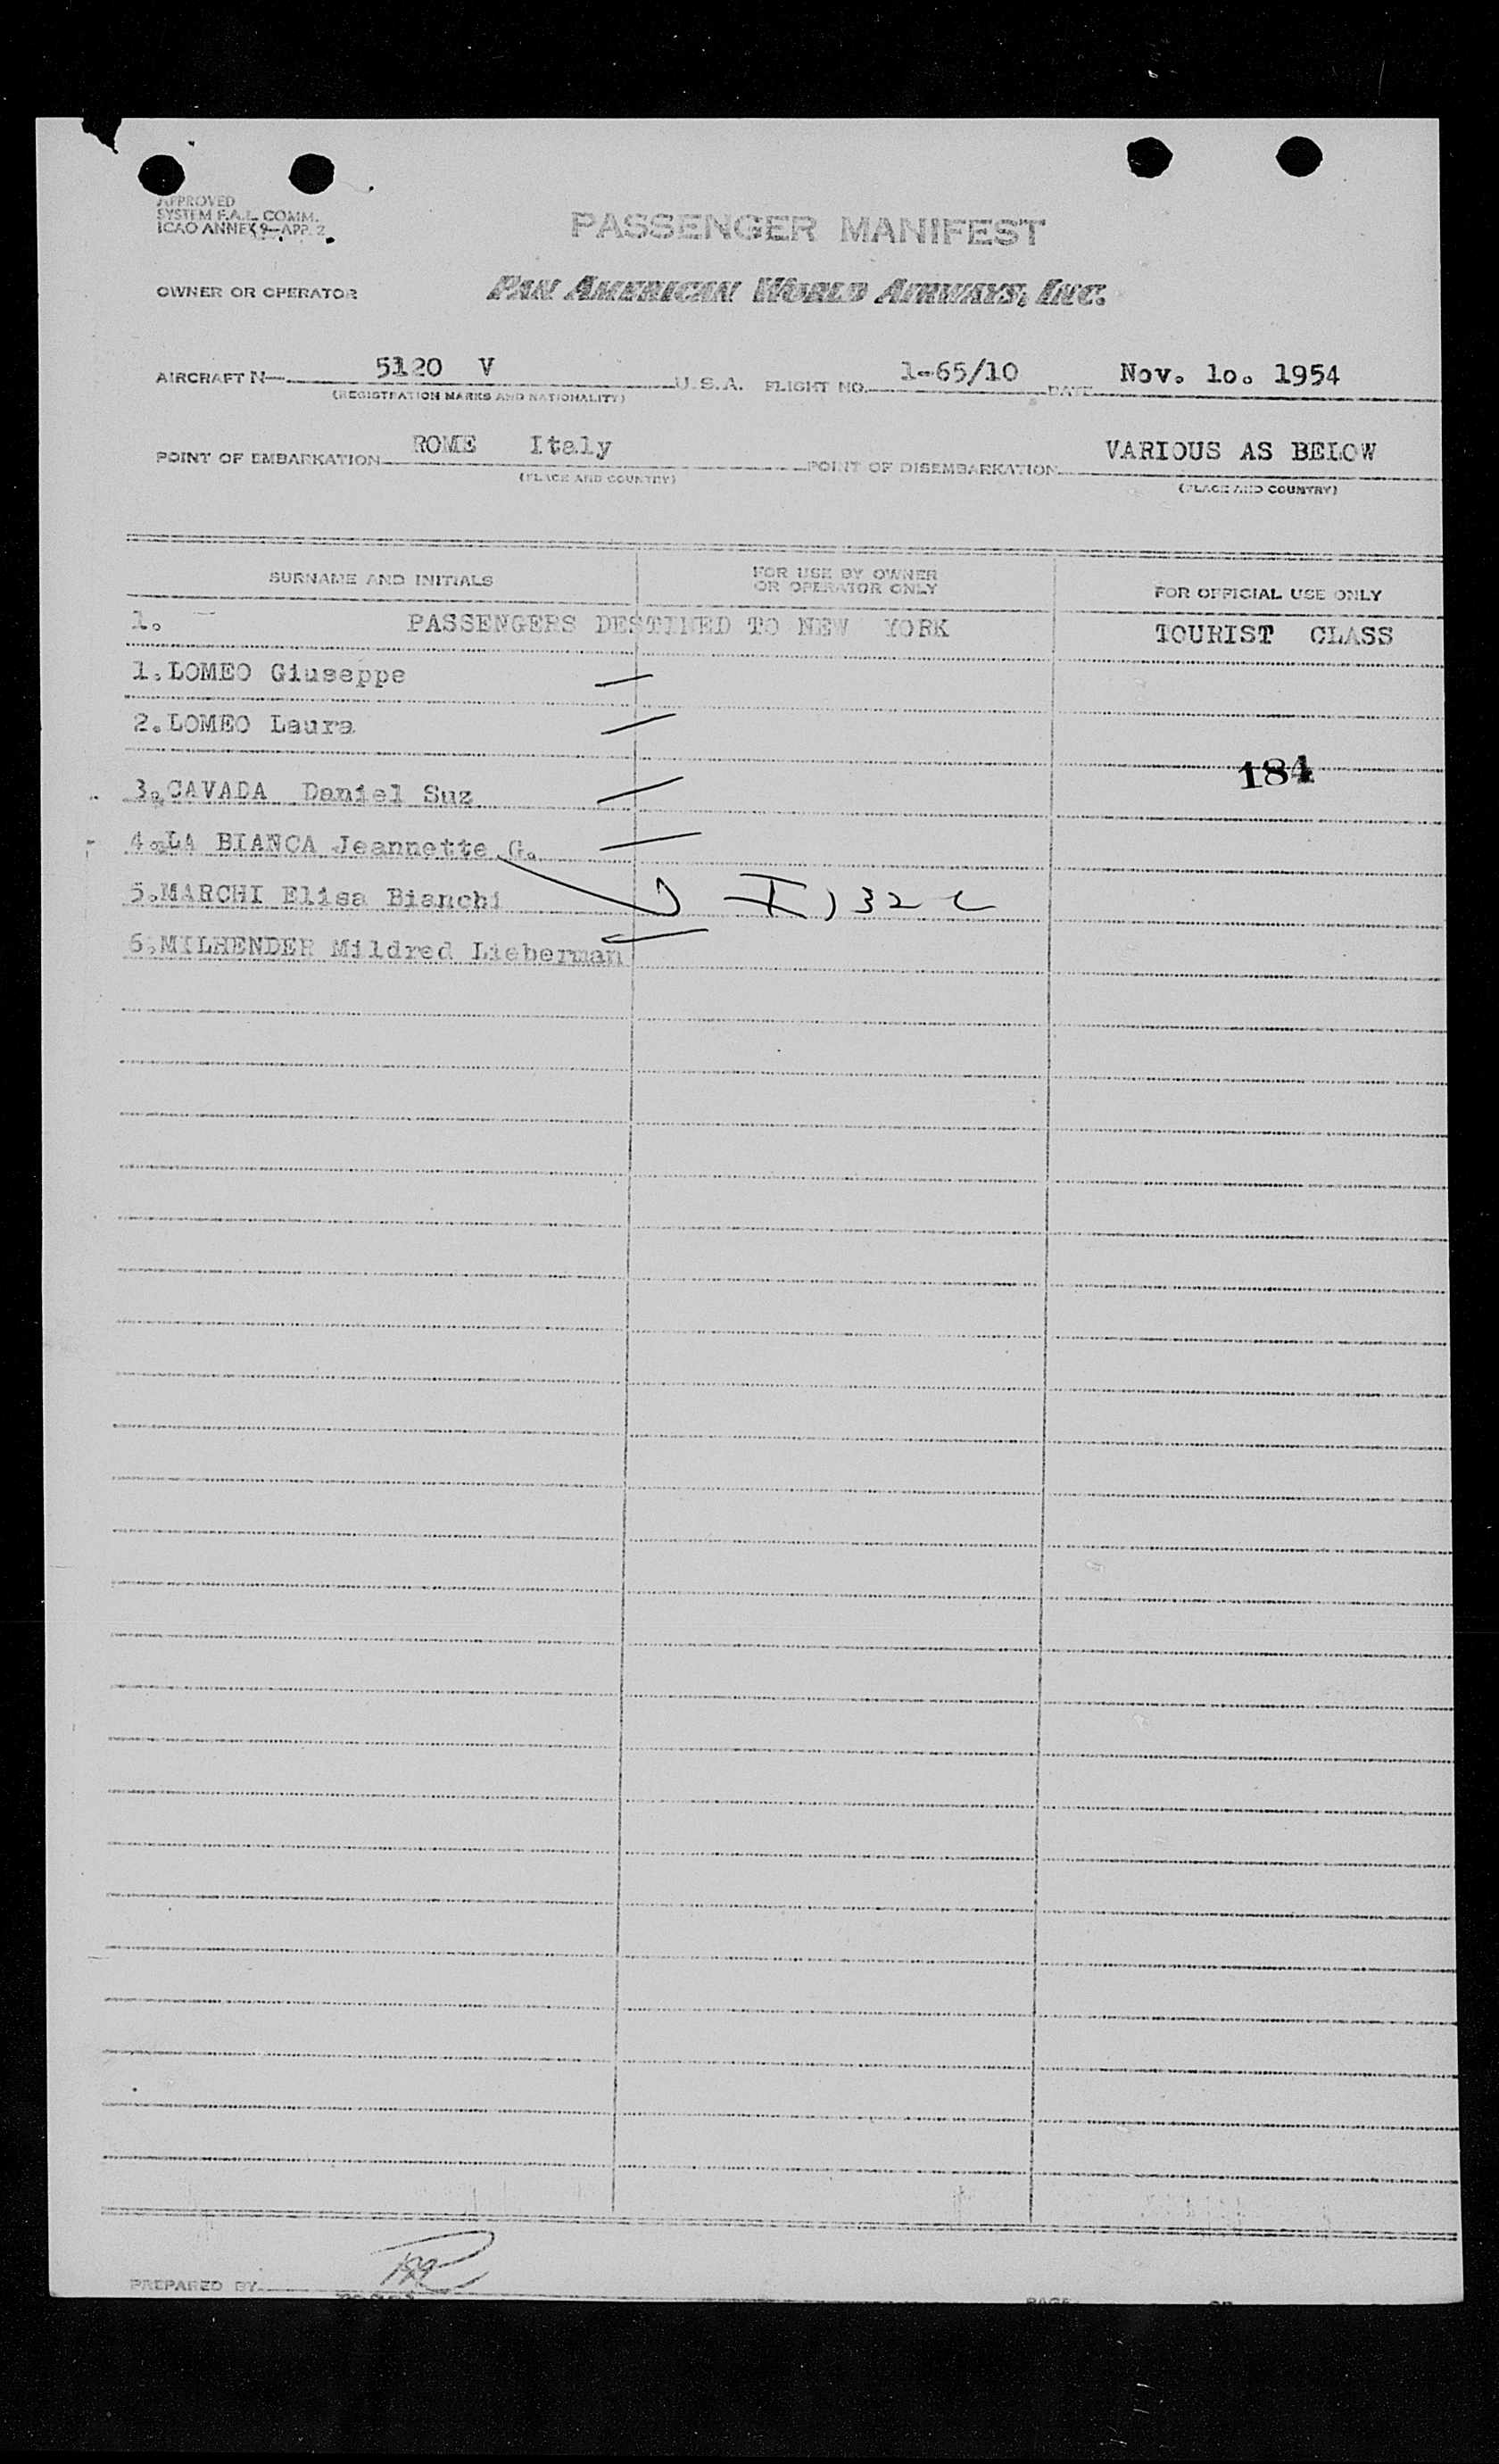 APPROVED
SYSTEM F.A.L. COMM.
ICAO ANNEX 9-APP. 2
PASSENGER MANIFEST
OWNER OR OPERATOR PAN AMERICAN WORLD AIRWAYS, INC.
AIRCRAFT N- 5120 V U.S.A. FLIGHT NO. 1-65/10 DATE Nov. 10. 1954
(REGISTRATION MARKS AND NATIONALITY)
POINT OF EMBARKATION ROME Italy POINT OF DISEMBARKATION VARIOUS AS BELOW
(PLACE AND COUNTRY) (PLACE AND COUNTRY)
SURNAME AND INITIALS FOR USE BY OWNER OR OPERATOR ONLY FOR OFFICIAL USE ONLY
1. PASSENGERS DESTINED TO NEW YORK TOURIST CLASS
1.LOMEO Giuseppe
2.LOMEO Laura
184
3.CAVADA Daniel Suz
4.LA BIANCA Jeannette G.
5.MARCHI Elisa Bianchi
6.MILHENDER Mildred Lieberman
PREPARED BY